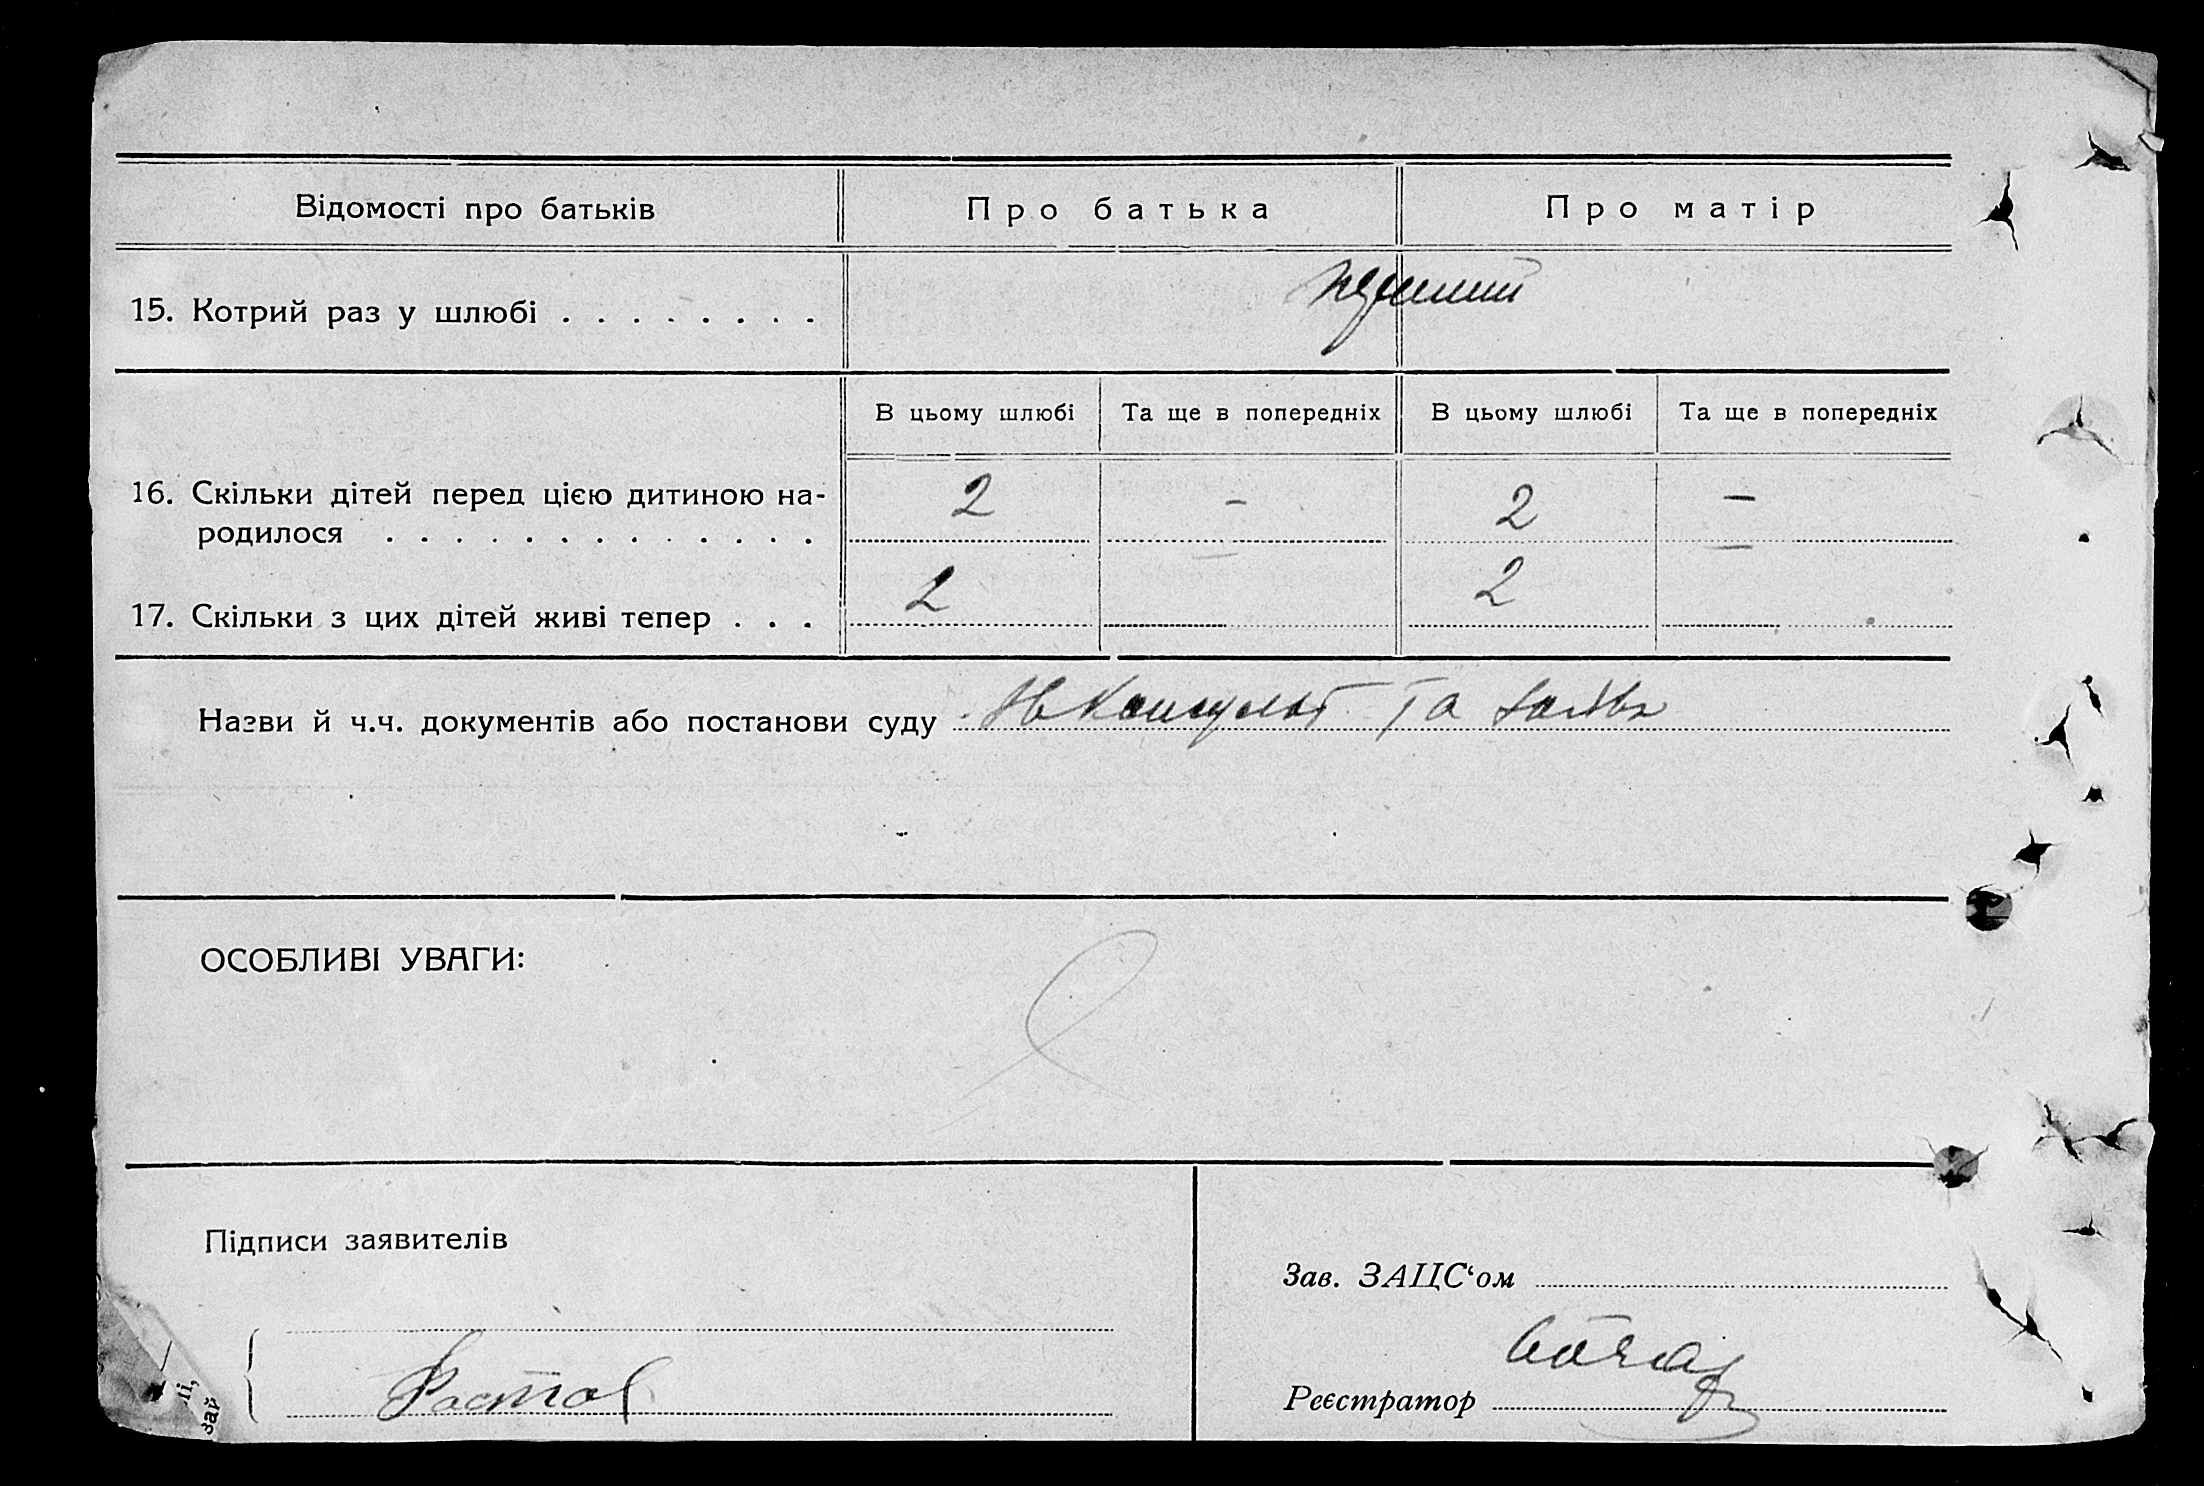 Відомості про батьків
Про батька
Про матір
15. Котрий раз у шлюбі . . . . . . . .
перший
В цьому шлюбі
Та ще в попередніх
В цьому шлюбі
Та ще в попередніх
16. Скільки дітей перед цією дитиною на-
родилося . . . . . . . . . . . . .
2
-
2
-
17. Скільки з цих дітей живі тепер . . .
2
-
2
-
Назви й ч.ч. документів або постанови суду та заява
ОСОБЛИВІ УВАГИ:
Підписи заявителів
Зав. ЗАЦС‘ом
Реєстратор
зай